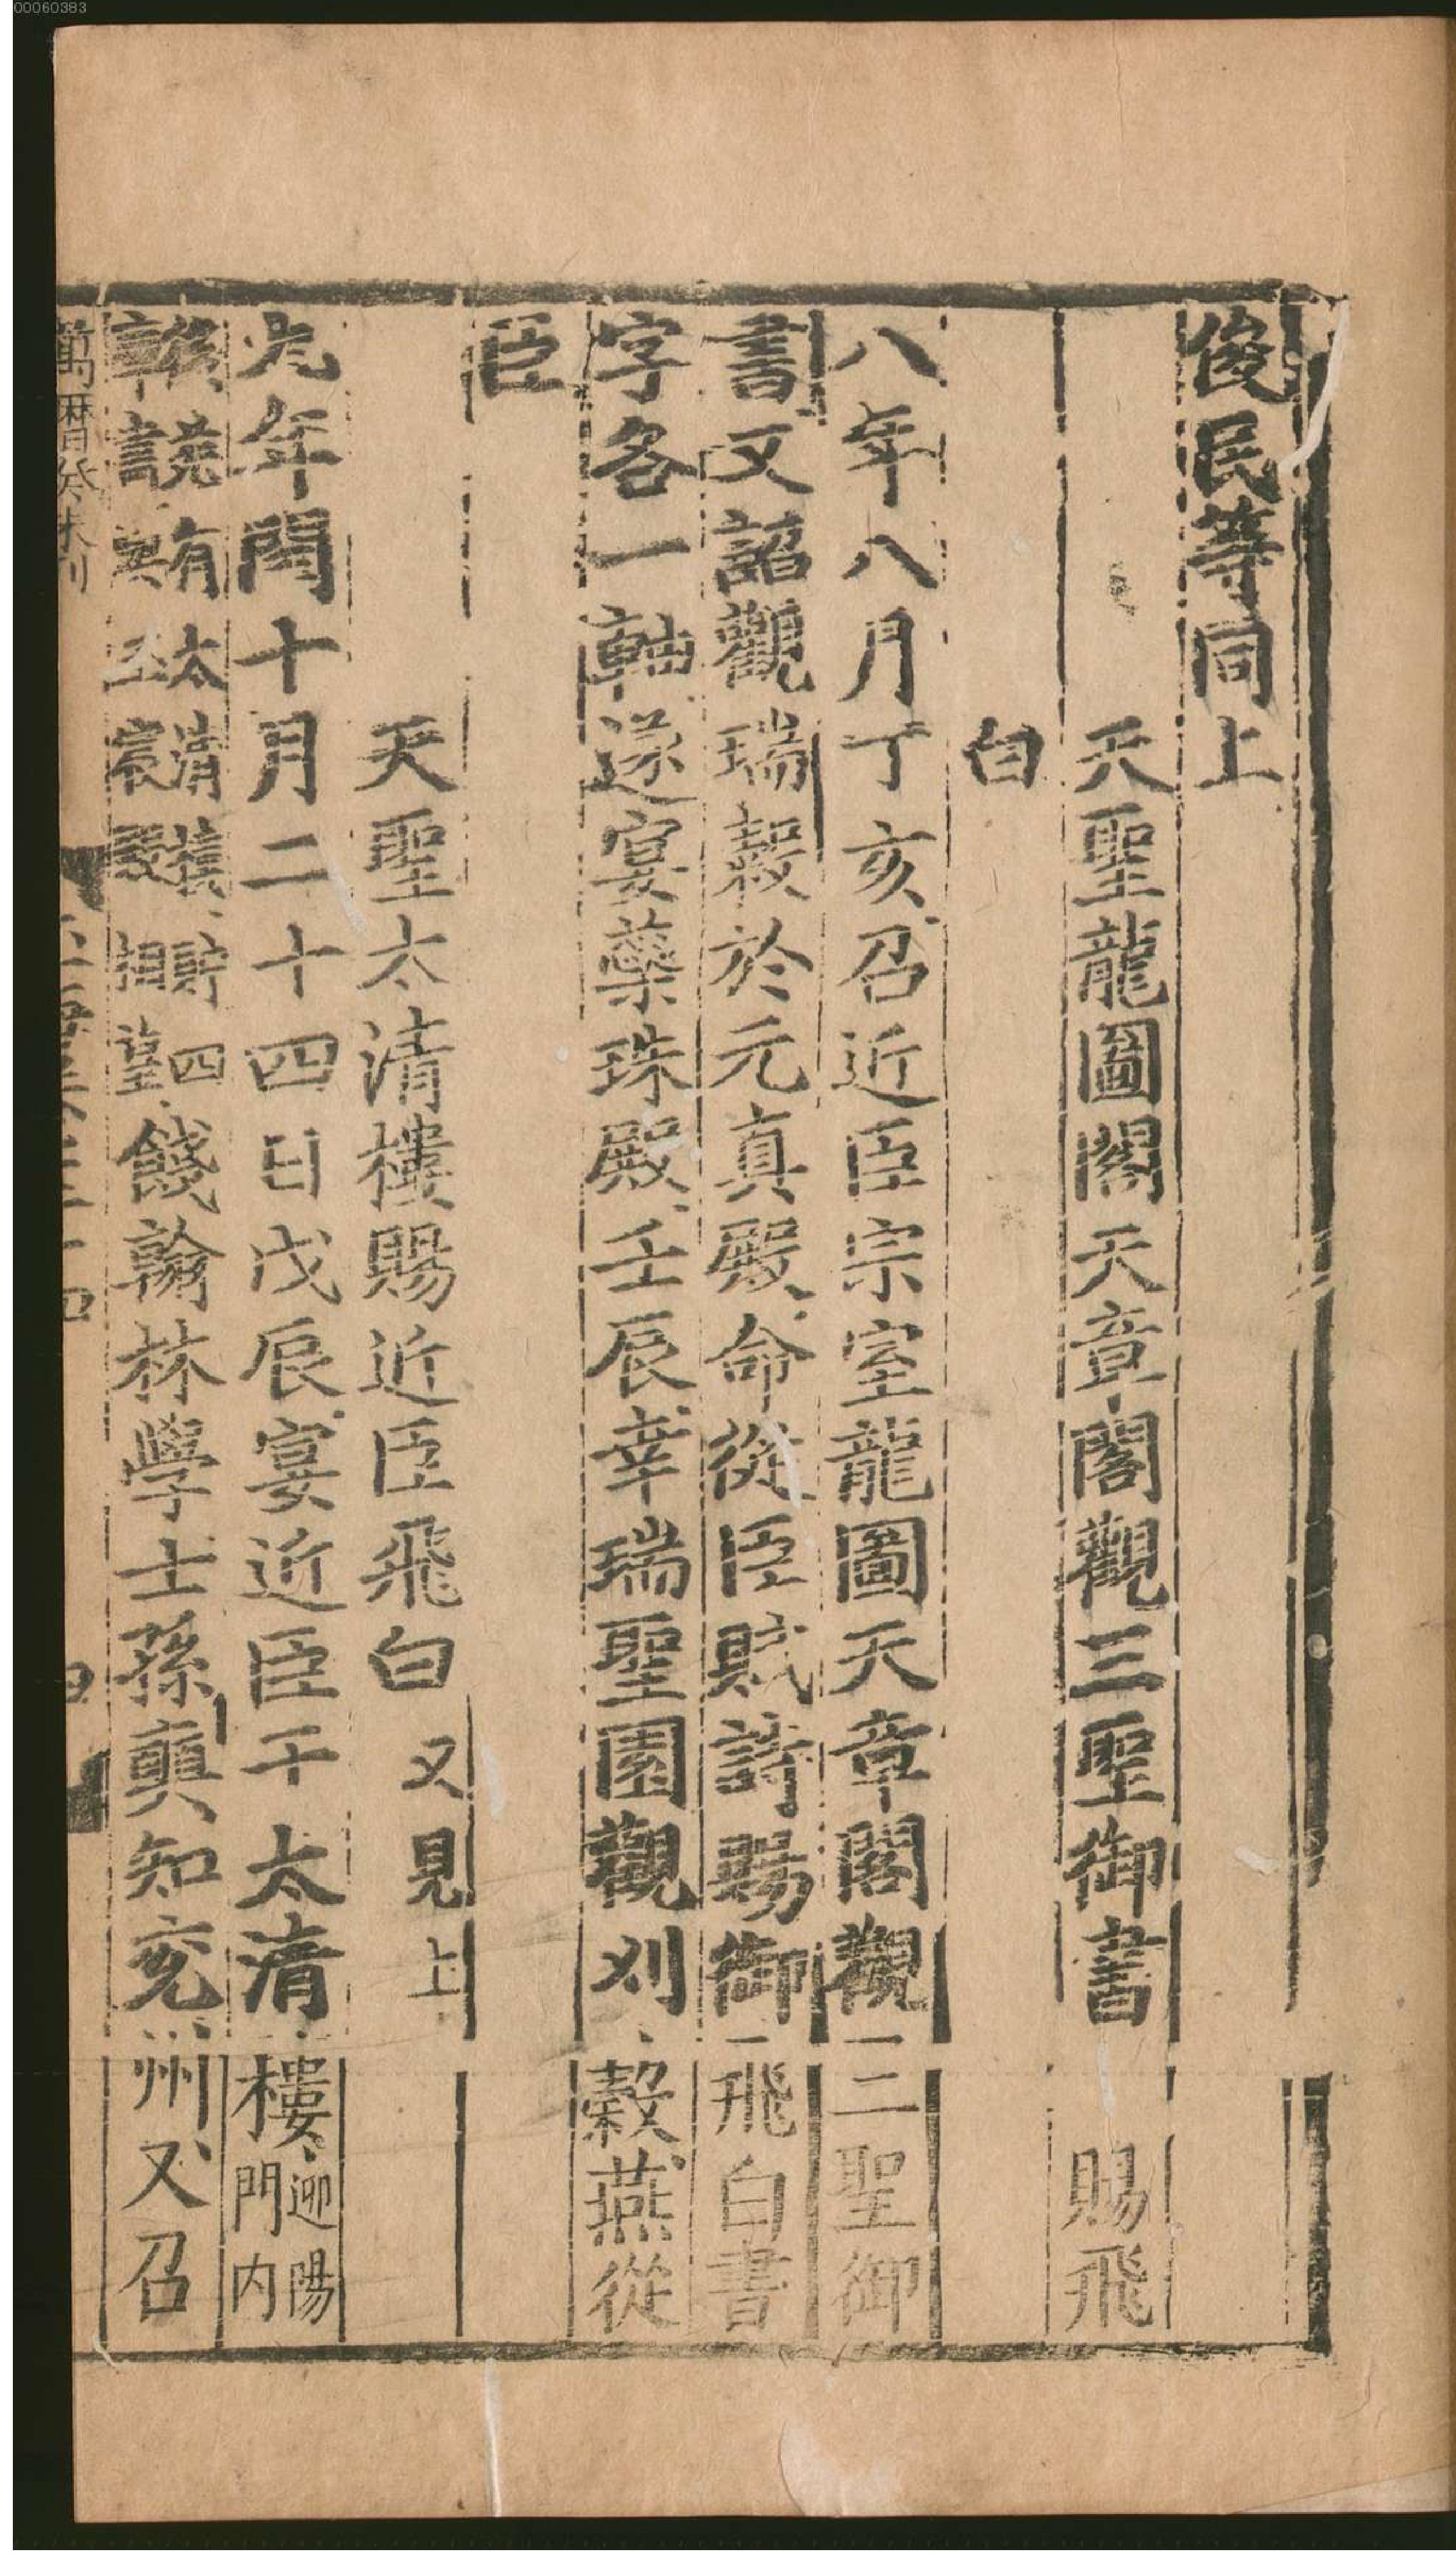 00060383
俊民等同上
天聖龍圖閣天章閣觀三聖御書 賜飛
白
八年八月丁亥召近臣宗室龍圖天章閣觀三聖御
書又詔觀瑞穀於元真殿命從臣賦詩賜御飛白書
字各一軸遂宴蘂珠殿壬辰幸瑞聖園觀刈穀燕從
臣
天聖太清樓賜近臣飛白 又見上
九年閏十月二十四日戊辰宴近臣于太清樓迎陽門内
有太清 四 餞翰林學士孫奭知兖州又召
萬曆癸未刊